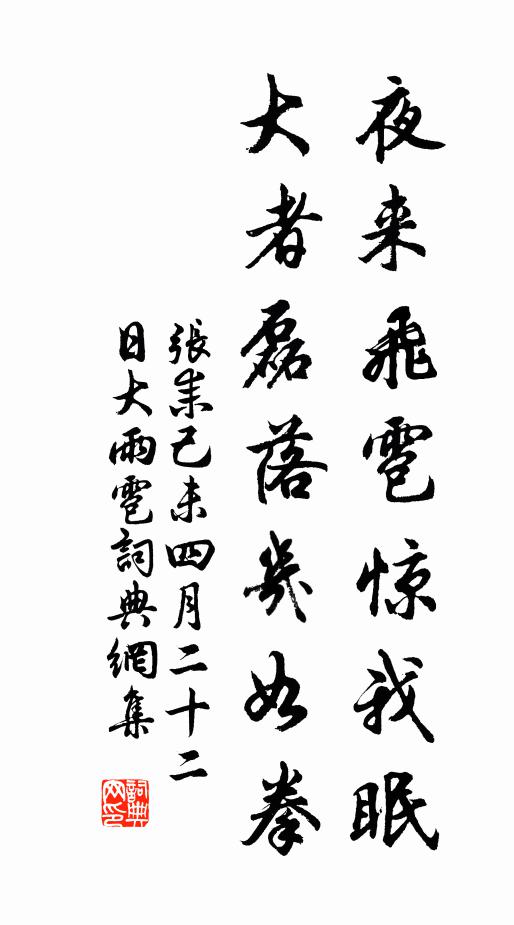 夜来飛雹惊我眠
大者磊落幾如拳
張耒己未四月二十二
日大雨雹詞典網集
詞典
网印